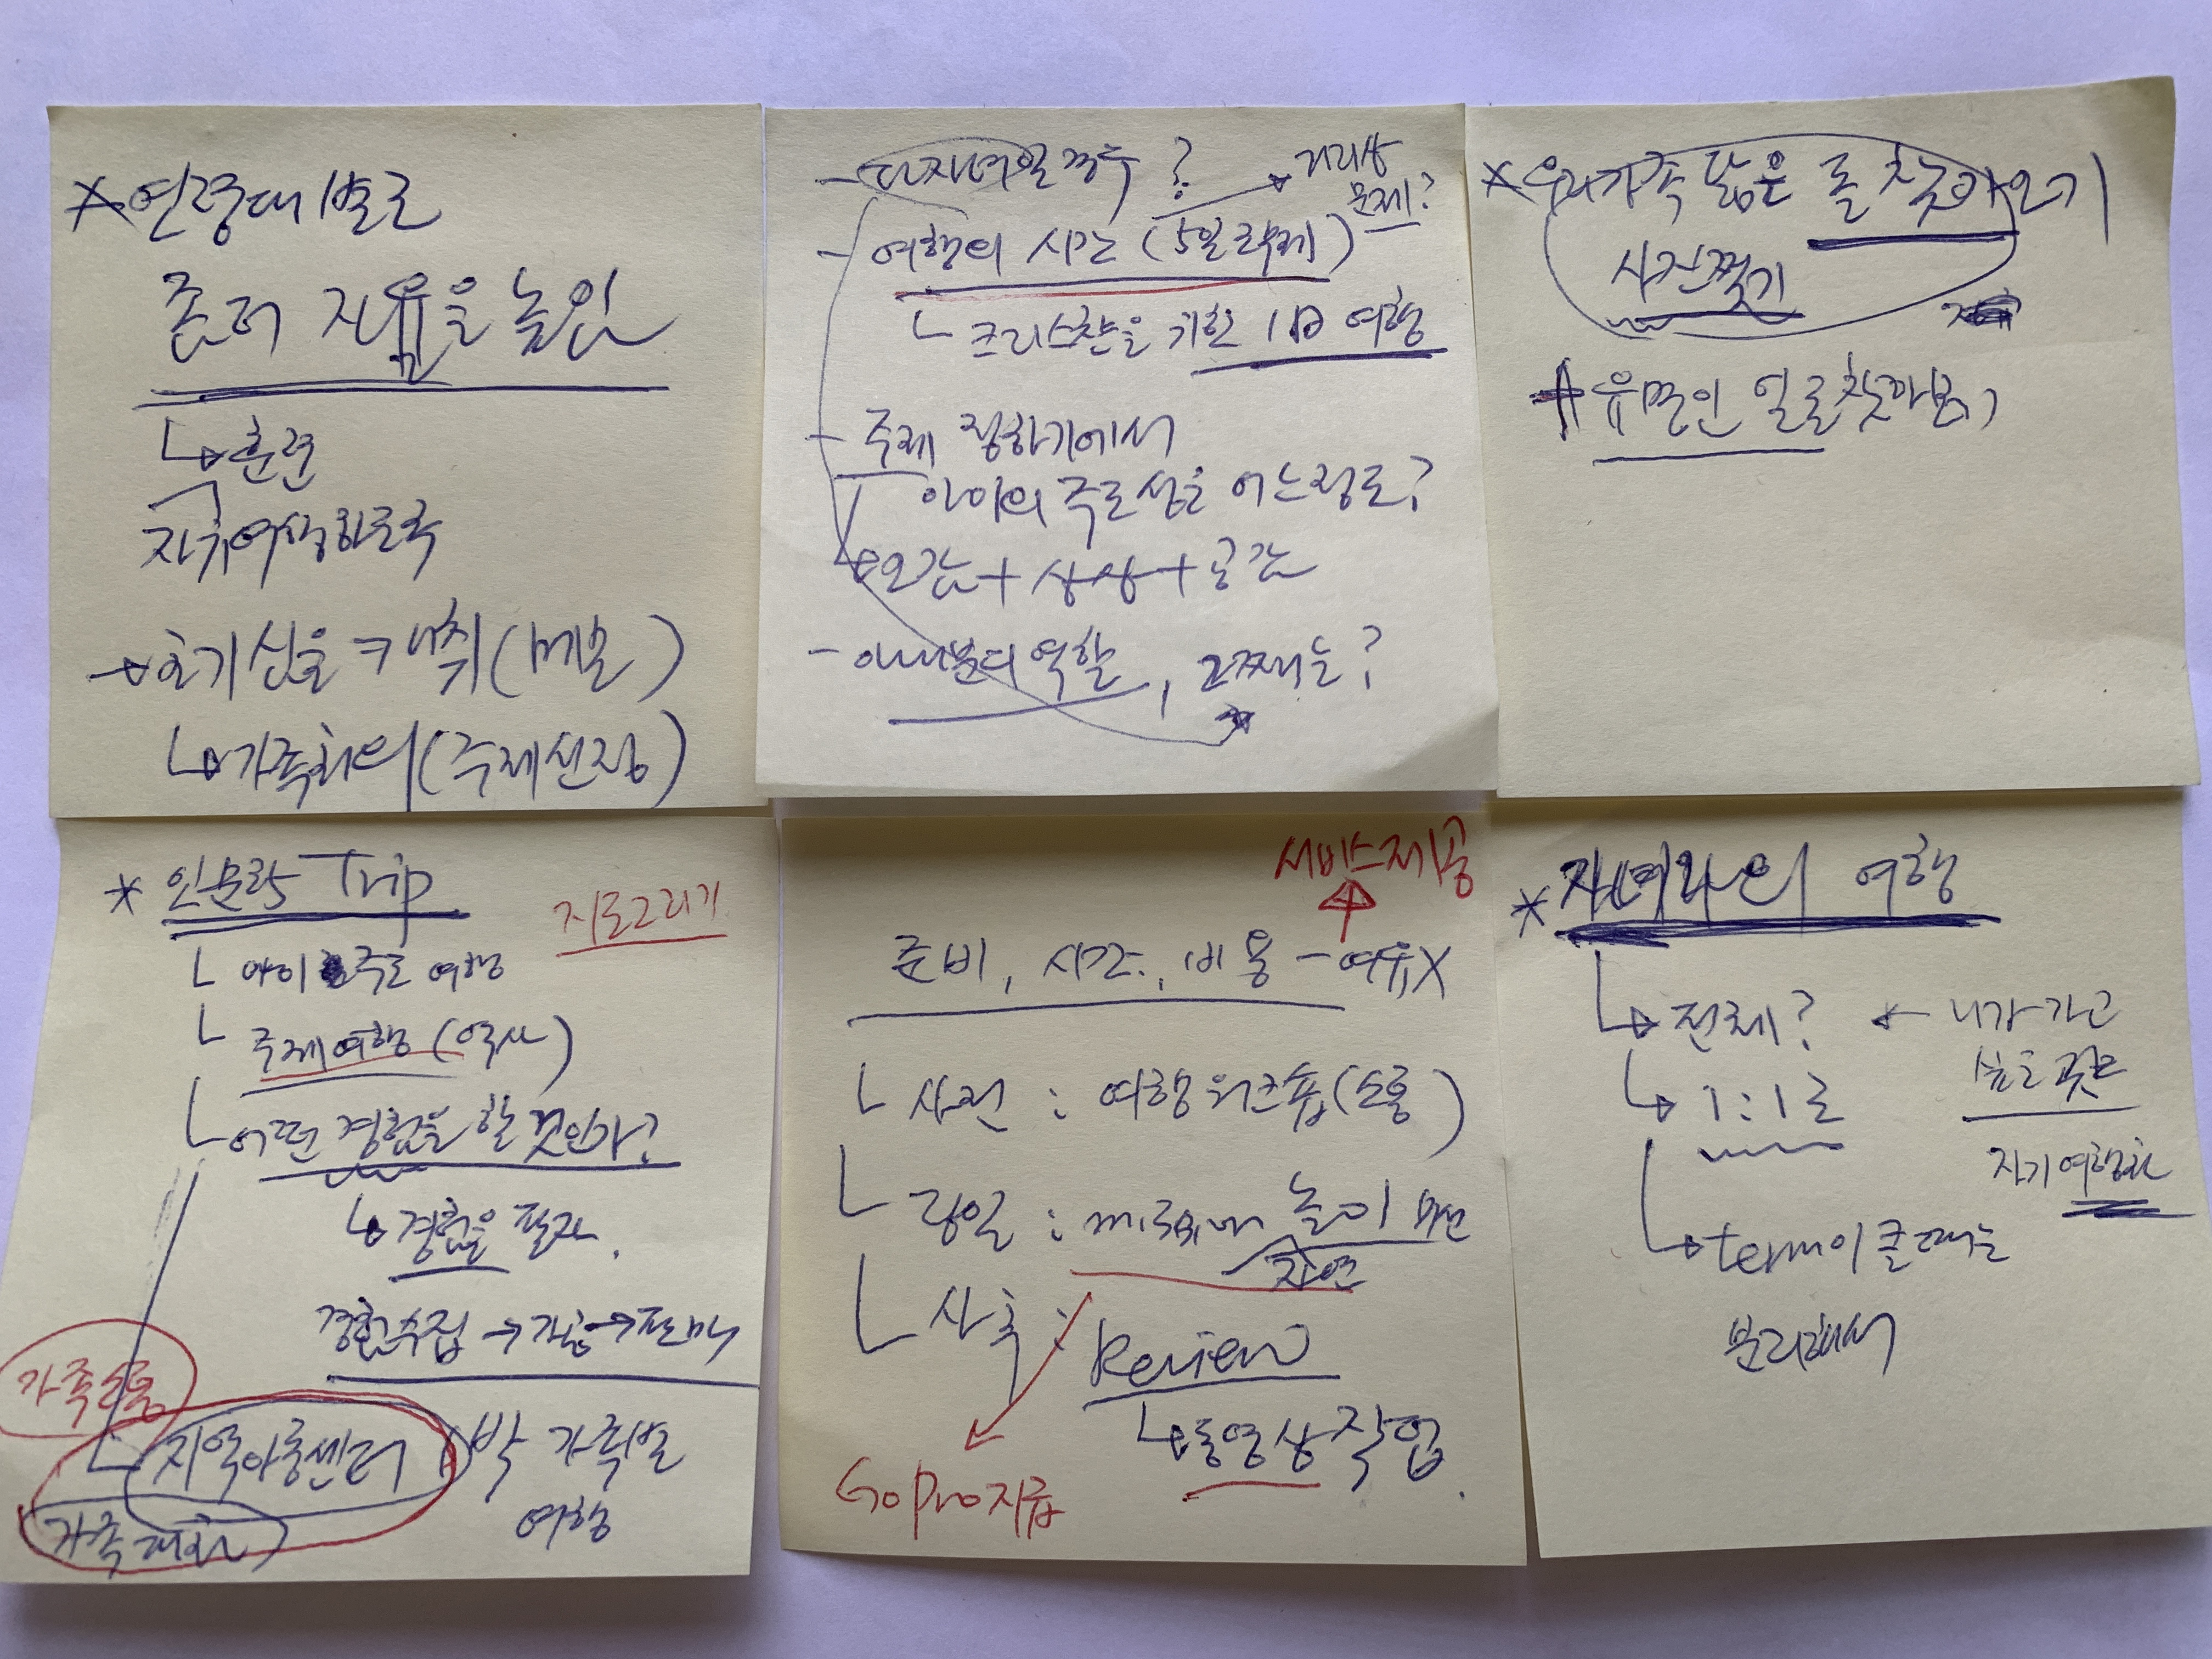 * 연령대별로
존건 자유을 높인
↳ 훈련
자유여행하도록
→ 호기심을 캐취(메모)
↳ 가족회의(주제선정)
- 다자녀일 경우?
→ 거리상
문제?
- 여행의 시간 (5일 학제)
ㄴ 크리스챤을 기획 1日 여행
- 주제 정하기에서
아이의 주도성을 어느정도?
오감 + 상상 + 공감
- 아내분의 역할, 교재는?
* 우리가족 닮은 돌 찾아오기
사진찍기
* 유명인 얼굴찾아보기
* 인문학 Trip
지도그리기
ㄴ 아이 주도 여행
ㄴ 주제여행 (역사)
ㄴ 어떤 경험을 할 것인가?
↳ 경험을 팔자.
경험수집 → 가공 → 판매
가족소통
ㄴ 지역아동센터
1박 가족별
여행
가족대화
서비스제공
준비, 시간, 비용 - 여유X
ㄴ 사전 : 여행워크숍(소통)
ㄴ 당일 : mission 놀이
자연
ㄴ 사후 :
Review
↳ 동영상작업.
GoPro지급
* 자녀와의 여행
↳ 전제? ← 니가 가고
싶은 곳은
↳ 1:1로
자기여행화
↳ term이 클때는
분리해서